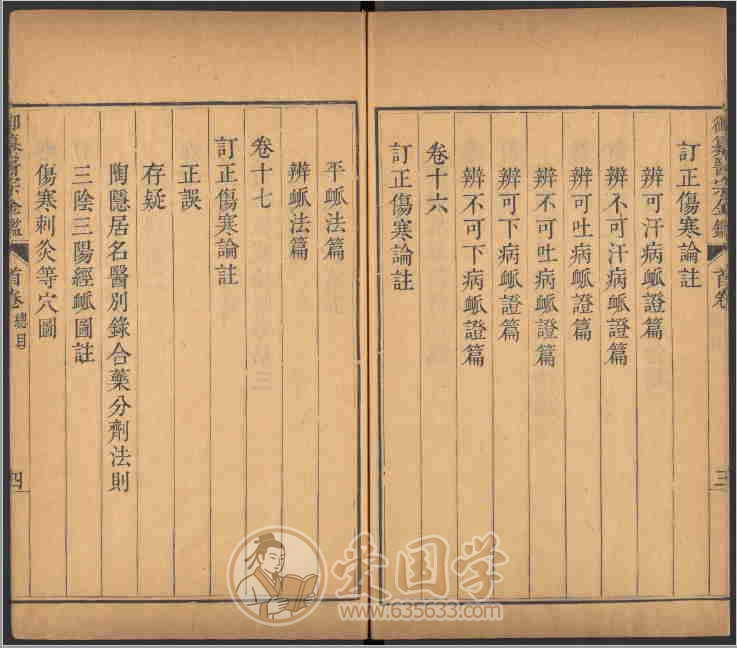 訂正傷寒論註
辨可汗病衇證篇
辨不可汗病衇證篇
辨可吐病衇證篇
辨不可吐病衇證篇
辨可下病衇證篇
辨不可下病衇證篇
卷十六
訂正傷寒論註
御纂醫宗金鑑
首卷
三
平衇法篇
辨衇法篇
卷十七
訂正傷寒論註
正誤
存疑
陶隱居名醫別錄合藥分劑法則
三陰三陽經衇圖註
傷寒刺灸等穴圖
御纂醫宗金鑑
首卷 總目
四
爱国学
www.635633.com